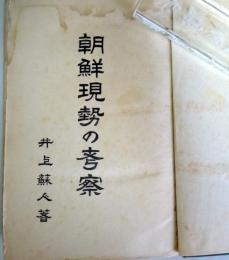 朝鮮現勢の考察
井上蘇人著